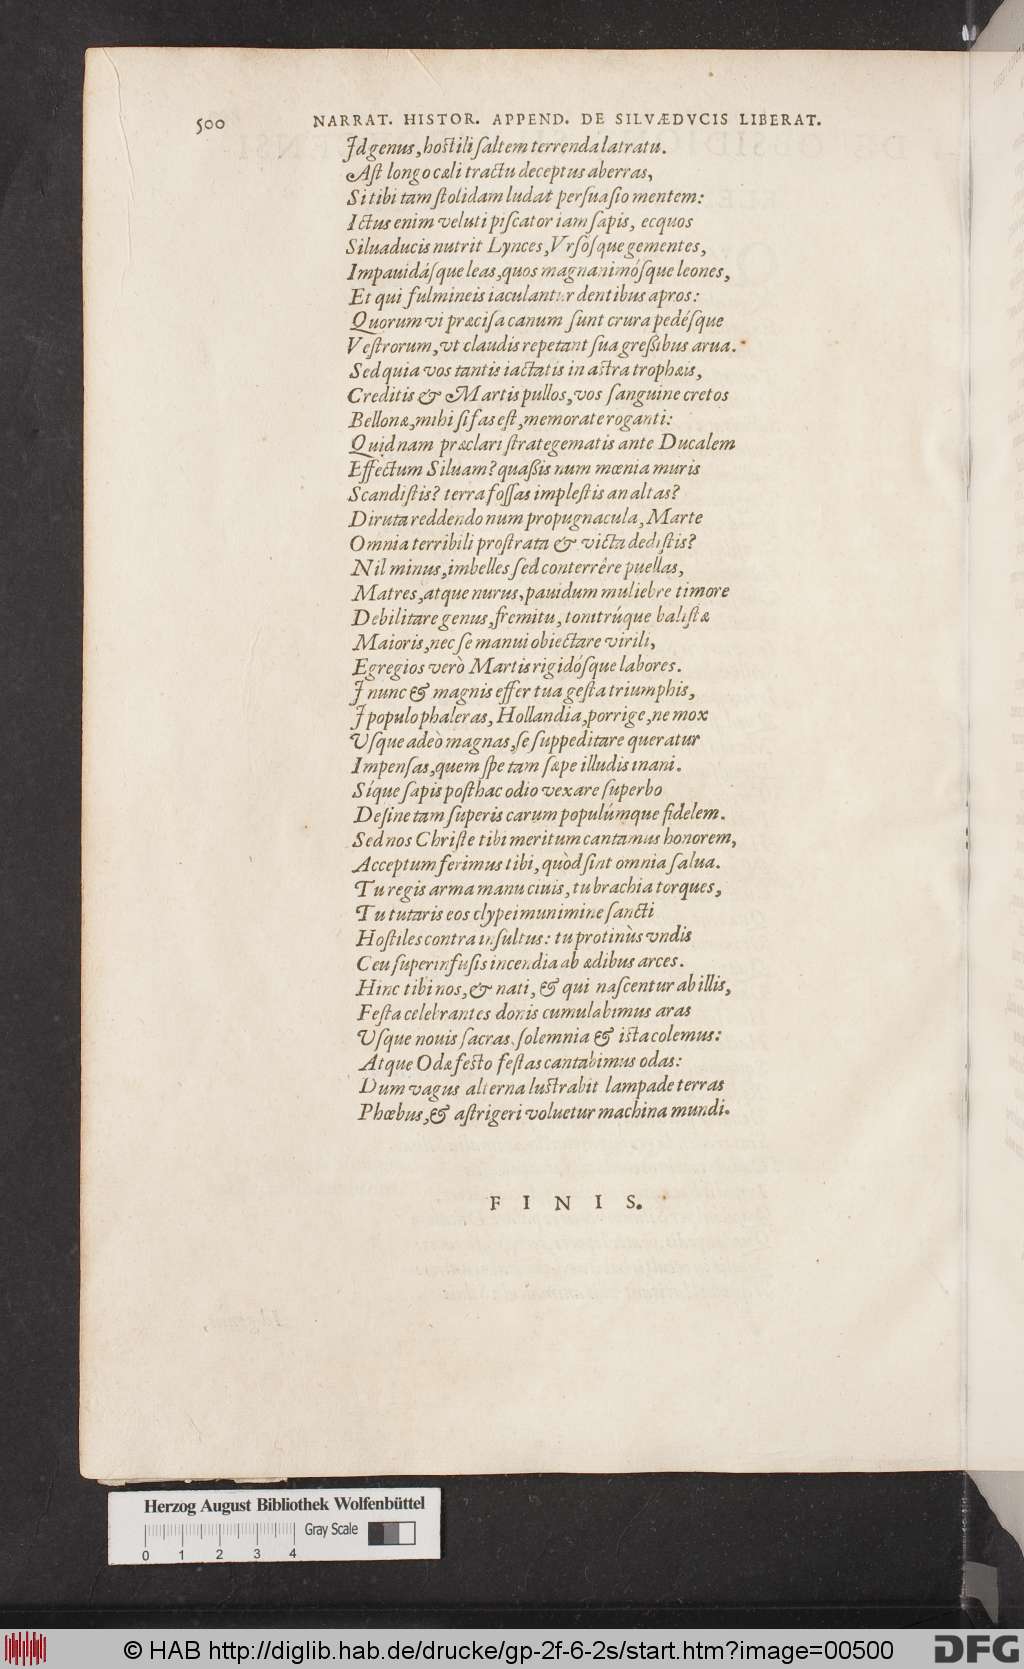 500 NARRAT. HISTOR. APPEND. DE SILVÆDVCIS LIBERAT.
Id genus, hostili saltem terrenda latratu.
Ast longo cæli tractu deceptus aberras,
Si tibi tam stolidam ludat persuasio mentem:
Ictus enim veluti piscator iam sapis, ecquos
Siluaducis nutrit Lynces, Vrsósque gementes,
Impauidásque leas, quos magnanimósque leones,
Et qui fulmineis iaculantur dentibus apros:
Quorum vi præcisa canum sunt crura pedésque
Vestrorum, vt claudis repetant sua gressibus arua.
Sed quia vos tantis iactatis in astra trophæis,
Creditis & Martis pullos, vos sanguine cretos
Bellonæ, mihi si fas est, memorate roganti:
Quidnam præclari strategematis ante Ducalem
Effectum Siluam? quassis num mœnia muris
Scandistis? terra fossas implestis an altas?
Diruta reddendo num propugnacula, Marte
Omnia terribili prostrata & victa dedistis?
Nil minus, imbelles sed conterrêre puellas,
Matres, atque nurus, pauidum muliebre timore
Debilitare genus, fremitu, tonitrúque balistæ
Maioris, nec se manui obiectare virili,
Egregios verò Martis rigidósque labores.
I nunc & magnis effer tua gesta triumphis,
I populo phaleras, Hollandia, porrige, ne mox
Vsque adeò magnas, se suppeditare queratur
Impensas, quem spe tam sæpe illudis inani.
Síque sapis posthac odio vexare superbo
Desine tam superis carum populúmque fidelem.
Sed nos Christe tibi meritum cantamus honorem,
Acceptum ferimus tibi, quòd sint omnia salua.
Tu regis arma manu ciuis, tu brachia torques,
Tu tutaris eos clypei munimine sancti
Hostiles contra insultus: tu protinùs vndis
Ceu superinfusis incendia ab ædibus arces.
Hinc tibi nos, & nati, & qui nascentur ab illis,
Festa celebrantes donis cumulabimus aras
Vsque nouis sacras, solemnia & ista colemus:
Atque Odæ festo festas cantabimus odas:
Dum vagus alterna lustrabit lampade terras
Phœbus, & astrigeri voluetur machina mundi.
F I N I S.
Herzog August Bibliothek Wolfenbüttel
Gray Scale
0 1 2 3 4
© HAB http://diglib.hab.de/drucke/gp-2f-6-2s/start.htm?image=00500
DFG